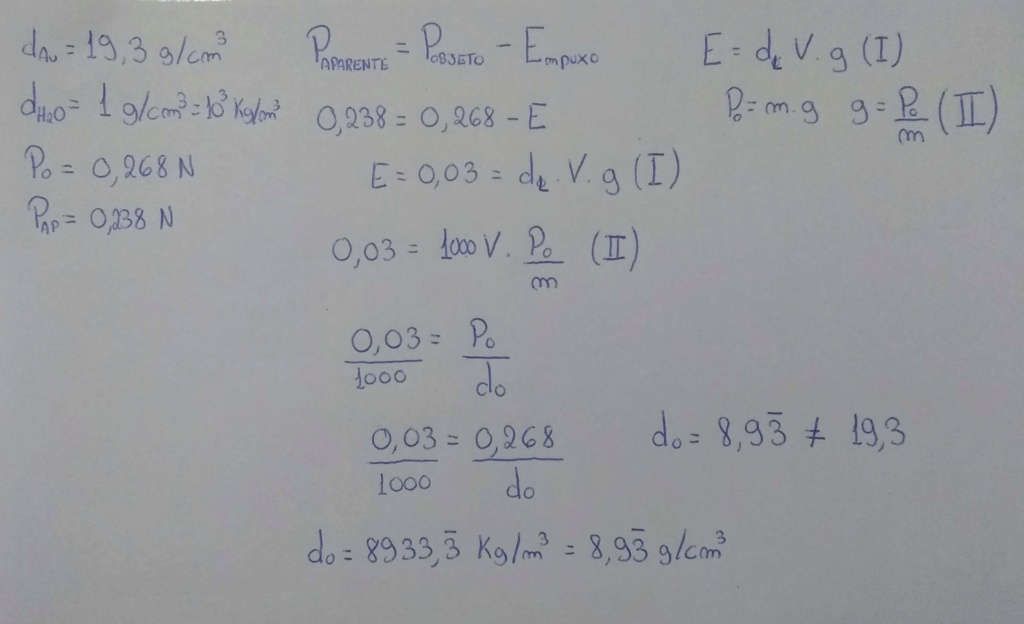 d_Au = 19,3 g/cm³
d_H2O = 1 g/cm³ = 10³ Kg/m³
P_O = 0,268 N
P_AP = 0,238 N
P_APARENTE = P_OBJETO - E_mpuxo
0,238 = 0,268 - E
E = 0,03 = d_L . V . g (I)
0,03 = 1000 V . P_O/m (II)
0,03/1000 = P_O/d_O
0,03/1000 = 0,268/d_O
d_O = 8933,3̅ Kg/m³ = 8,93̅ g/cm³
E = d_L V . g (I)
P_O = m . g g = P_O/m (II)
d_O = 8,93̅ ≠ 19,3